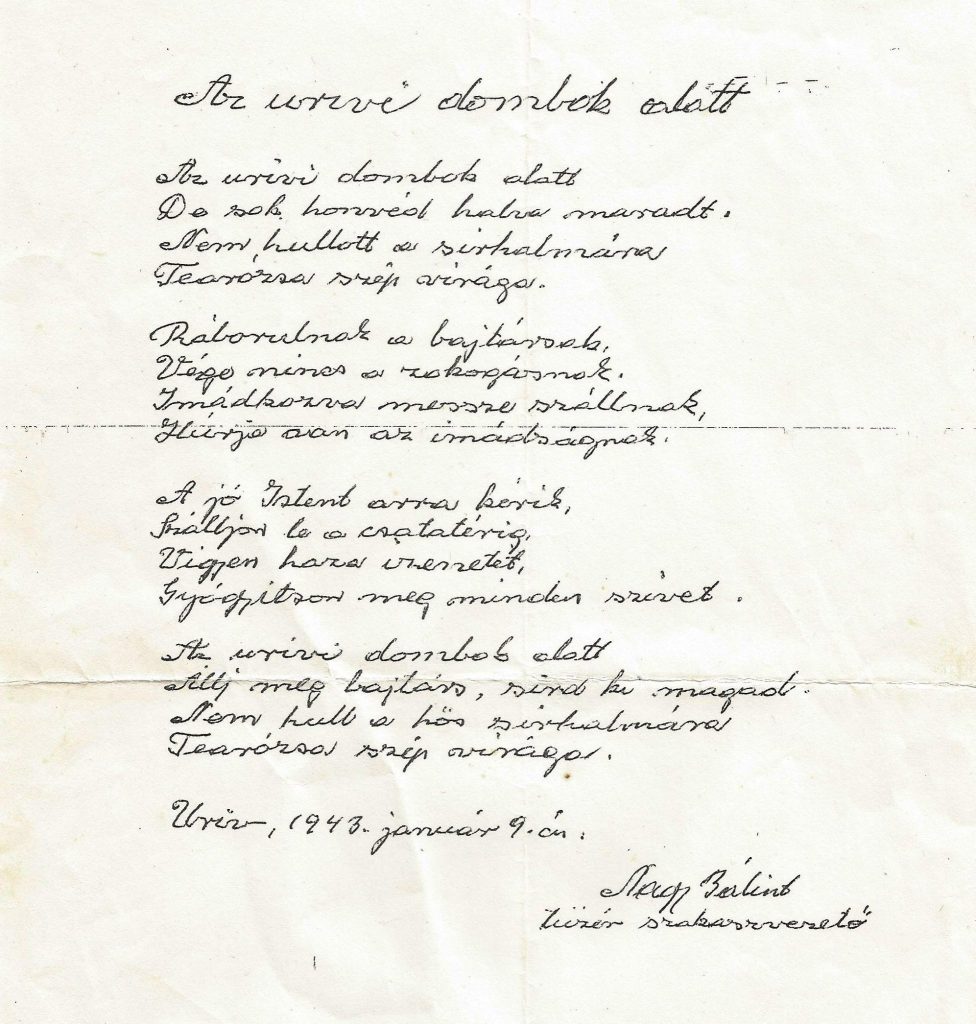 Az urivi dombok alatt
Az urivi dombok alatt
De sok honvéd halva maradt.
Nem hullott a sirhalmára
Tearózsa szép virága.
Ráborulnak a bajtársak,
Vége nincs a zokogásnak.
Imádkozva messze szállnak,
Húrja van az imádságnak.
A jó Istent arra kérik,
Szálljon le a csatatérig,
Vigyen haza üzenetet,
Gyógyitson meg minden szivet.
Az urivi dombok alatt
Állj meg bajtárs, sird ki magad.
Nem hull a hős sirhalmára
Tearózsa szép virága.
Uriv, 1943. január 9.-én.
Nagy Bálint
tüzér szakaszvezető